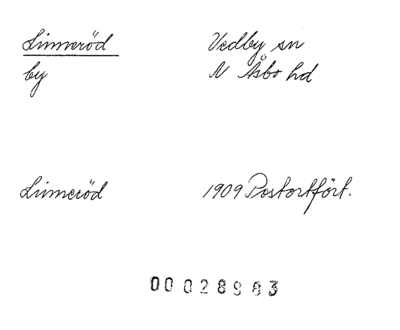 Linneröd Vedby sn
by N Åsbo hd
Linneröd 1909 Postortfört.
00 028983